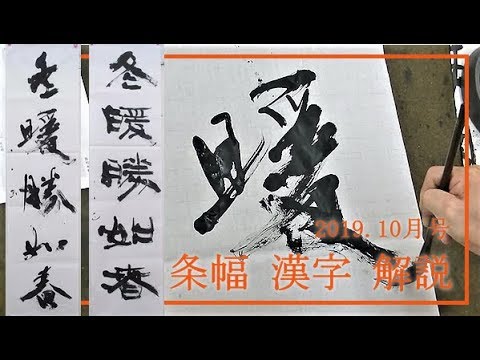 冬暖勝如春
冬暖勝如春
暖
2019.10月号
条幅 漢字 解説